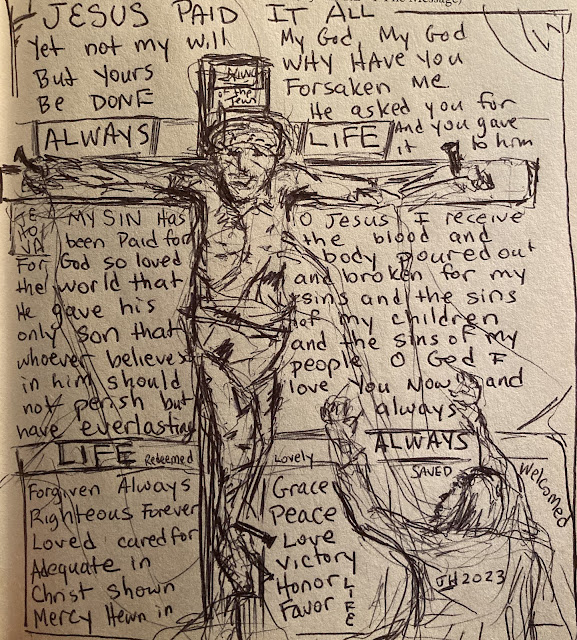 The Message)
JESUS PAID IT ALL
Yet not my will
But yours
Be DONE
My God, My God
WHY HAVE YOU
Forsaken Me
He asked you for
And you gave
it to him
KING
of the
Jews
ALWAYS
LIFE
JE
HO
VA
MY SIN Has
been Paid for
For God so loved
the world that
He gave his
only son that
whoever believes
in him should
not perish but
have everlasting
LIFE
O Jesus I receive
the blood and
body poured out
and broken for my
sins and the sins
of my children
and the sins of my
people O God I
love You Now and
always
ALWAYS
Redeemed
Lovely
SAVED
Welcomed
Forgiven Always
Righteous Forever
Loved cared for
Adequate in
Christ shown
Mercy Hewn in
Grace
Peace
Love
Victory
Honor
Favor
LIFE
JH2023